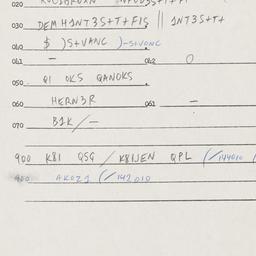 020
030 DEM H1NT3S+T+F1S || 1NT3S+T+
040 $ )S+VANC )-SIVONC
041 - 042 O
050 Q1 OKS QANOKS
060 HERN3R 061 -
070 B1K/-
900 K81 QSG / K8IJEN QPL (/144010
900 AKOZ1 (/142010